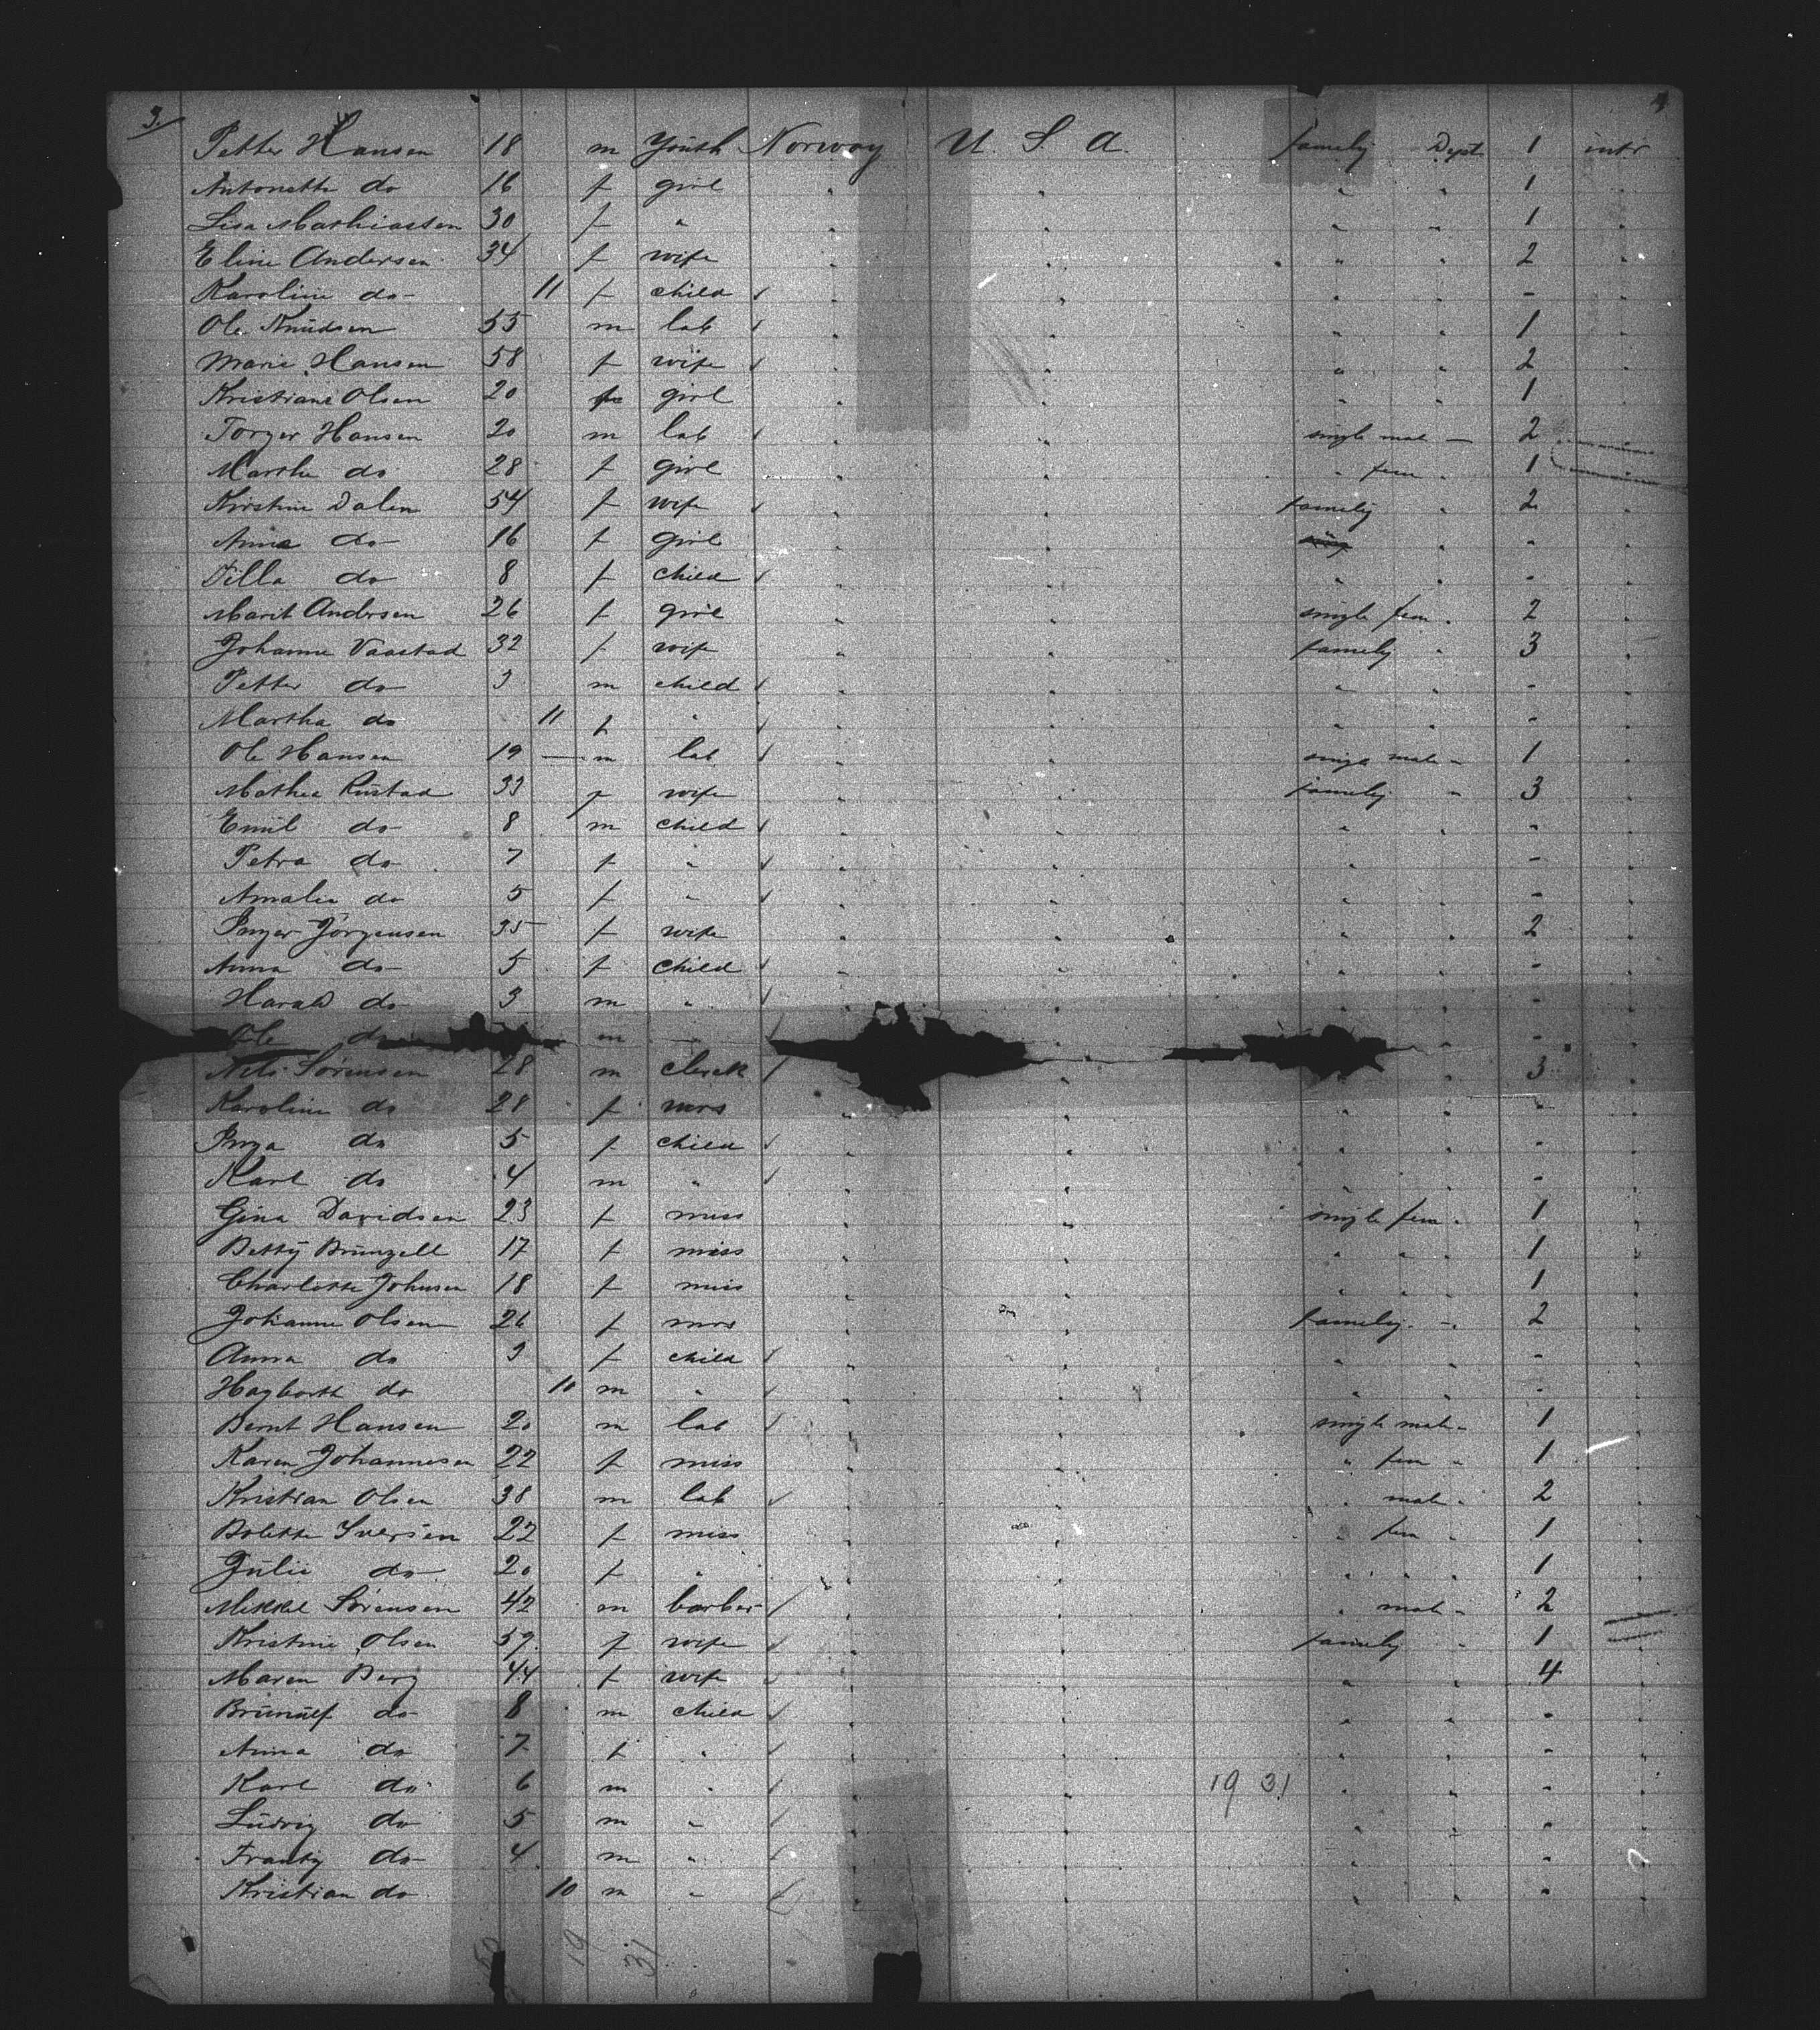 3.
Petter Hansen 18 m Youth Norway U. S. A. famely Dept. 1 intr
Antonette do 16 f girl " " " " 1 "
Lisa Mathiassen 30 f " " " " " 1 "
Eline Andersen 34 f wife " " " " 2 "
Karoline do 11 f child " " " " - "
Ole Knudsen 55 m lab " " " " 1 "
Marie Hansen 58 f wife " " " " 2 "
Kristiane Olsen 20 f girl " " " " 1 "
Torger Hansen 20 m lab " " single male - 2 "
Marthe do 28 f girl " " " fem " 1 "
Kirstine Dalen 54 f wife " " famely " 2 "
Anna do 16 f girl " " " - "
Tilla do 8 f child " " " " - "
Marit Andersen 26 f girl " " single fem " 2 "
Johanne Vaastad 32 f wife " " famely " 3 "
Petter do 3 m child " " " " - "
Martha do 11 f " " " " " - "
Ole Hansen 19 - m lab " " single male - 1 "
Mathea Rustad 33 f wife " " famely " 3 "
Emil do 8 m child " " " " - "
Petra do 7 f " " " " - "
Amalie do 5 f " " " " " - "
Inger Jørgensen 35 f wife " " " " 2 "
Anna do 5 f child " " " " - "
Harald do 3 m " " " " " - "
Ole do m " " - "
Nels Sørensen 28 m clerck " " 3 "
Karoline do 28 f mrs " " " " - "
Inga do 5 f child " " " " - "
Karl do 4 m " " " " " - "
Gina Davidsen 23 f miss " " single fem " 1 "
Betty Brunzell 17 f miss " " " " 1 "
Charlotte Johnsen 18 f miss " " " " 1 "
Johanne Olsen 26 f mrs " " famely - 2 "
Anna do 3 f child " " " " - "
Hagbarth do 10 m " " " " " - "
Bernt Hansen 20 m lab " " single male - 1 "
Karen Johannesen 22 f miss " " " fem " 1 "
Kristian Olsen 38 m lab " " " male " 2 "
Bolette Iversen 22 f miss " " " fem " 1 "
Julie do 20 f " " " " " 1 "
Mikkel Sørensen 42 m barber " " " male - 2 "
Kristine Olsen 59 f wife " " famely " 1 "
Maren Berg 44 f wife " " " " 4 "
Brunulf do 8 m child " " " " - "
Anna do 7 f " " " " " - "
Karl do 6 m " " " 19 31 " " - "
Ludvig do 5 m " " " " " - "
Frantz do 4 m " " " " " - "
Kristian do 10 m " " " " " - "
50 19 31